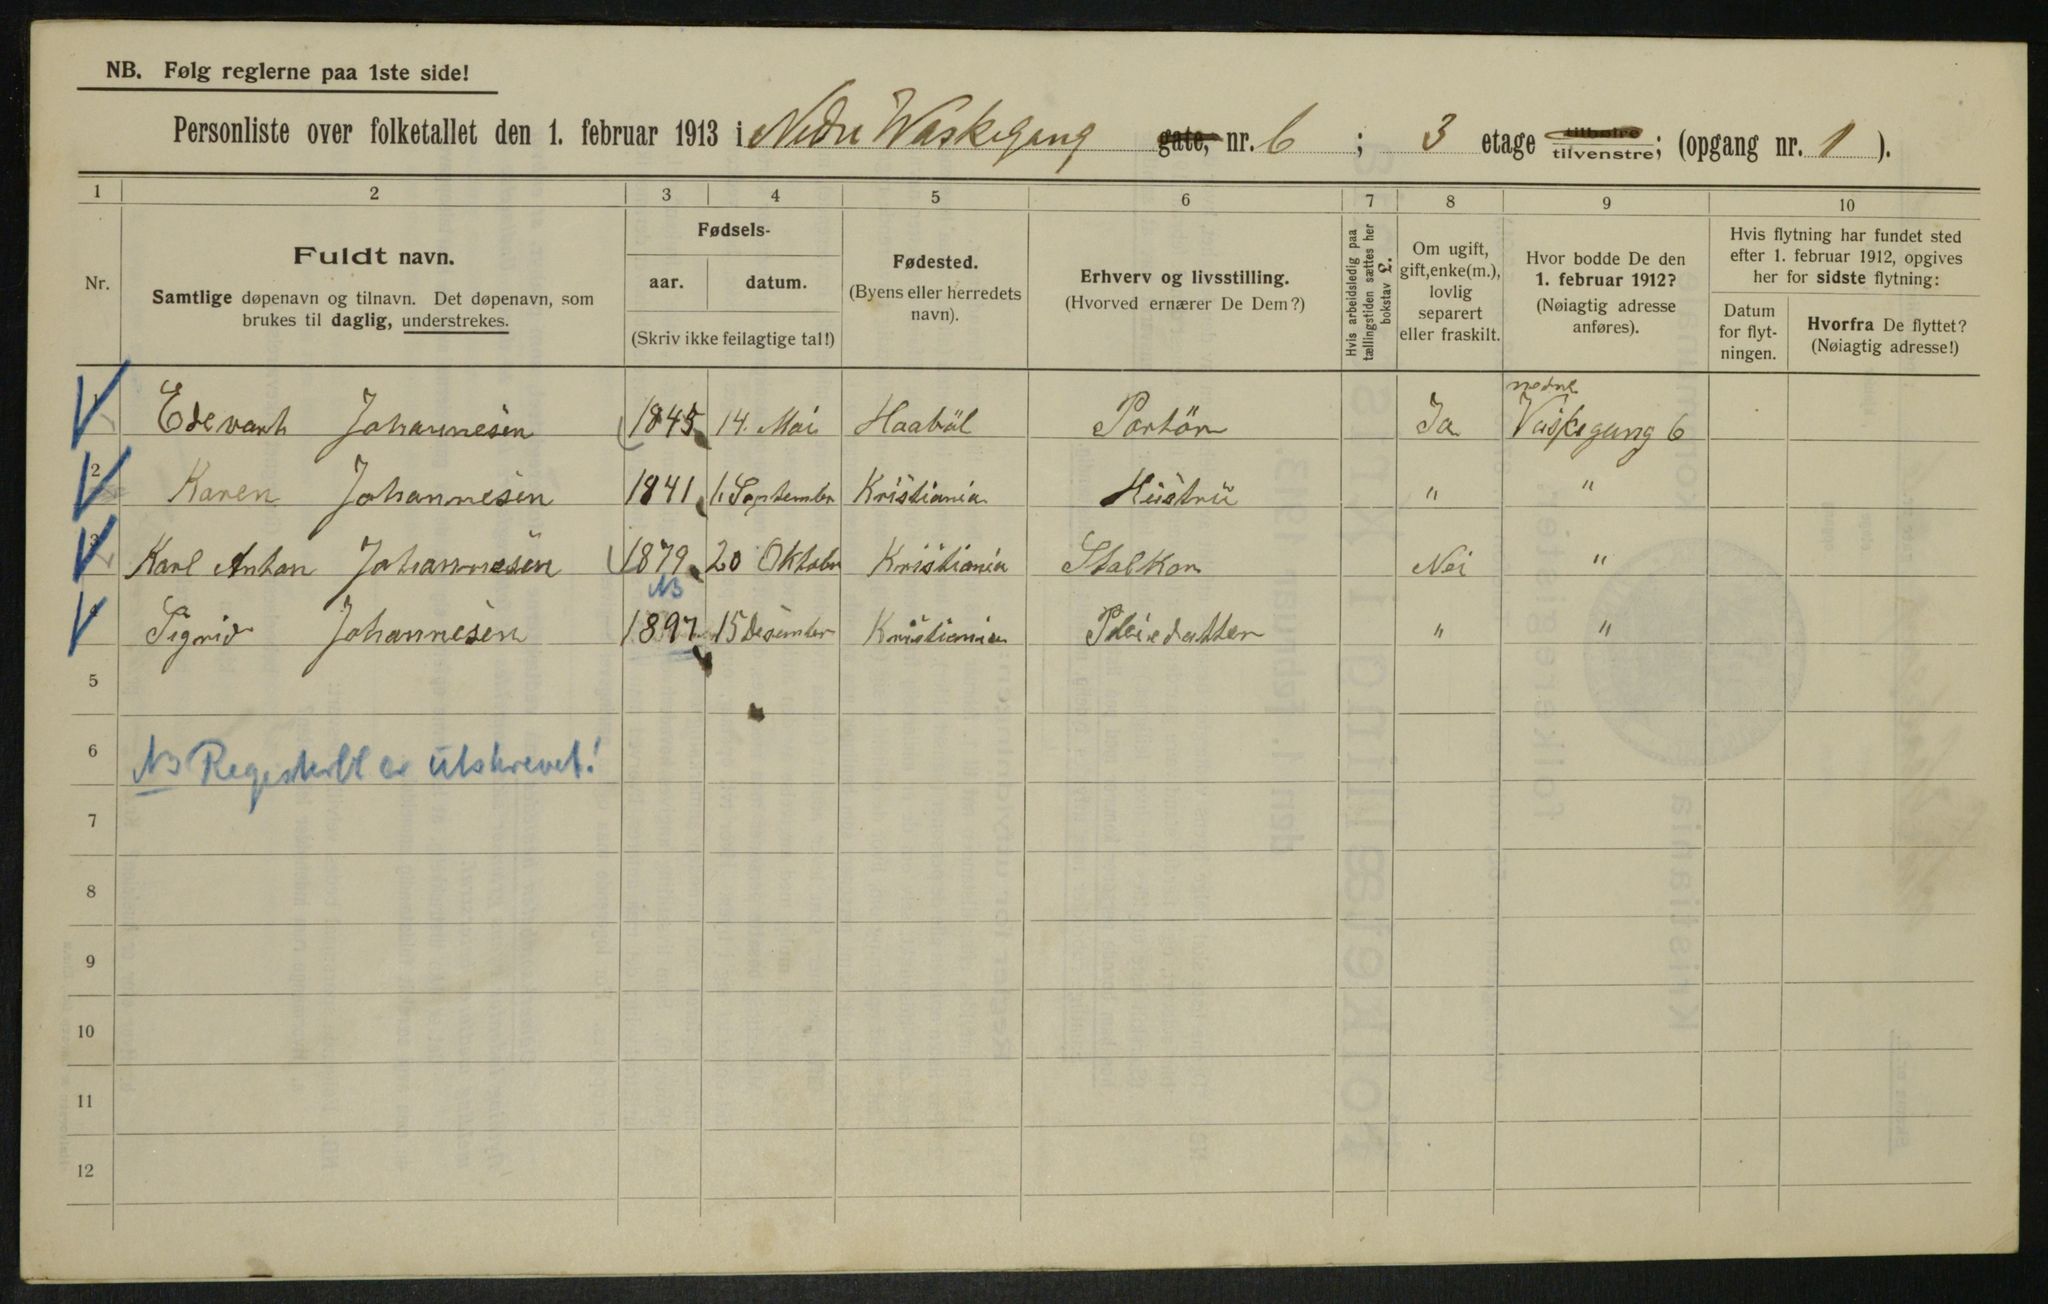 NB. Følg reglerne paa 1ste side!
Personliste over folketallet den 1. februar 1913 i Nedre Waskegang gate, nr. 6 ; 3 etage tilhøire tilvenstre; (opgang nr. 1 ).
1 2 3 4 5 6 7 8 9 10
Nr.
Fuldt navn.
Samtlige døpenavn og tilnavn. Det døpenavn, som
brukes til daglig, understrekes.
Fødsels-
aar. datum.
(Skriv ikke feilagtige tal!)
Fødested.
(Byens eller herredets
navn).
Erhverv og livsstilling.
(Hvorved ernærer De Dem?)
Hvis arbeidsledig paa
tællingstiden sættes her
bokstav L.
Om ugift,
gift, enke(m.),
lovlig
separert
eller fraskilt.
Hvor bodde De den
1. februar 1912?
(Nøiagtig adresse
anføres).
Hvis flytning har fundet sted
efter 1. februar 1912, opgives
her for sidste flytning:
Datum
for flyt-
ningen.
Hvorfra De flyttet?
(Nøiagtig adresse!)
nedre
1 Edevart Johannesen 1845 14. Mai Haaböl Portör Ja Vaskegang 6
2 Karen Johannesen 1841 1. September Kristiania Hustru " "
3 Karl Anton Johannesen 1879 20 Oktober Kristiania Stalkar Nei "
NB
4 Sigrid Johannesen 1897 15 Desember Kristiania Pleiedatter " "
5
6 NB Registerbl er utskrevet!
7
8
9
10
11
12